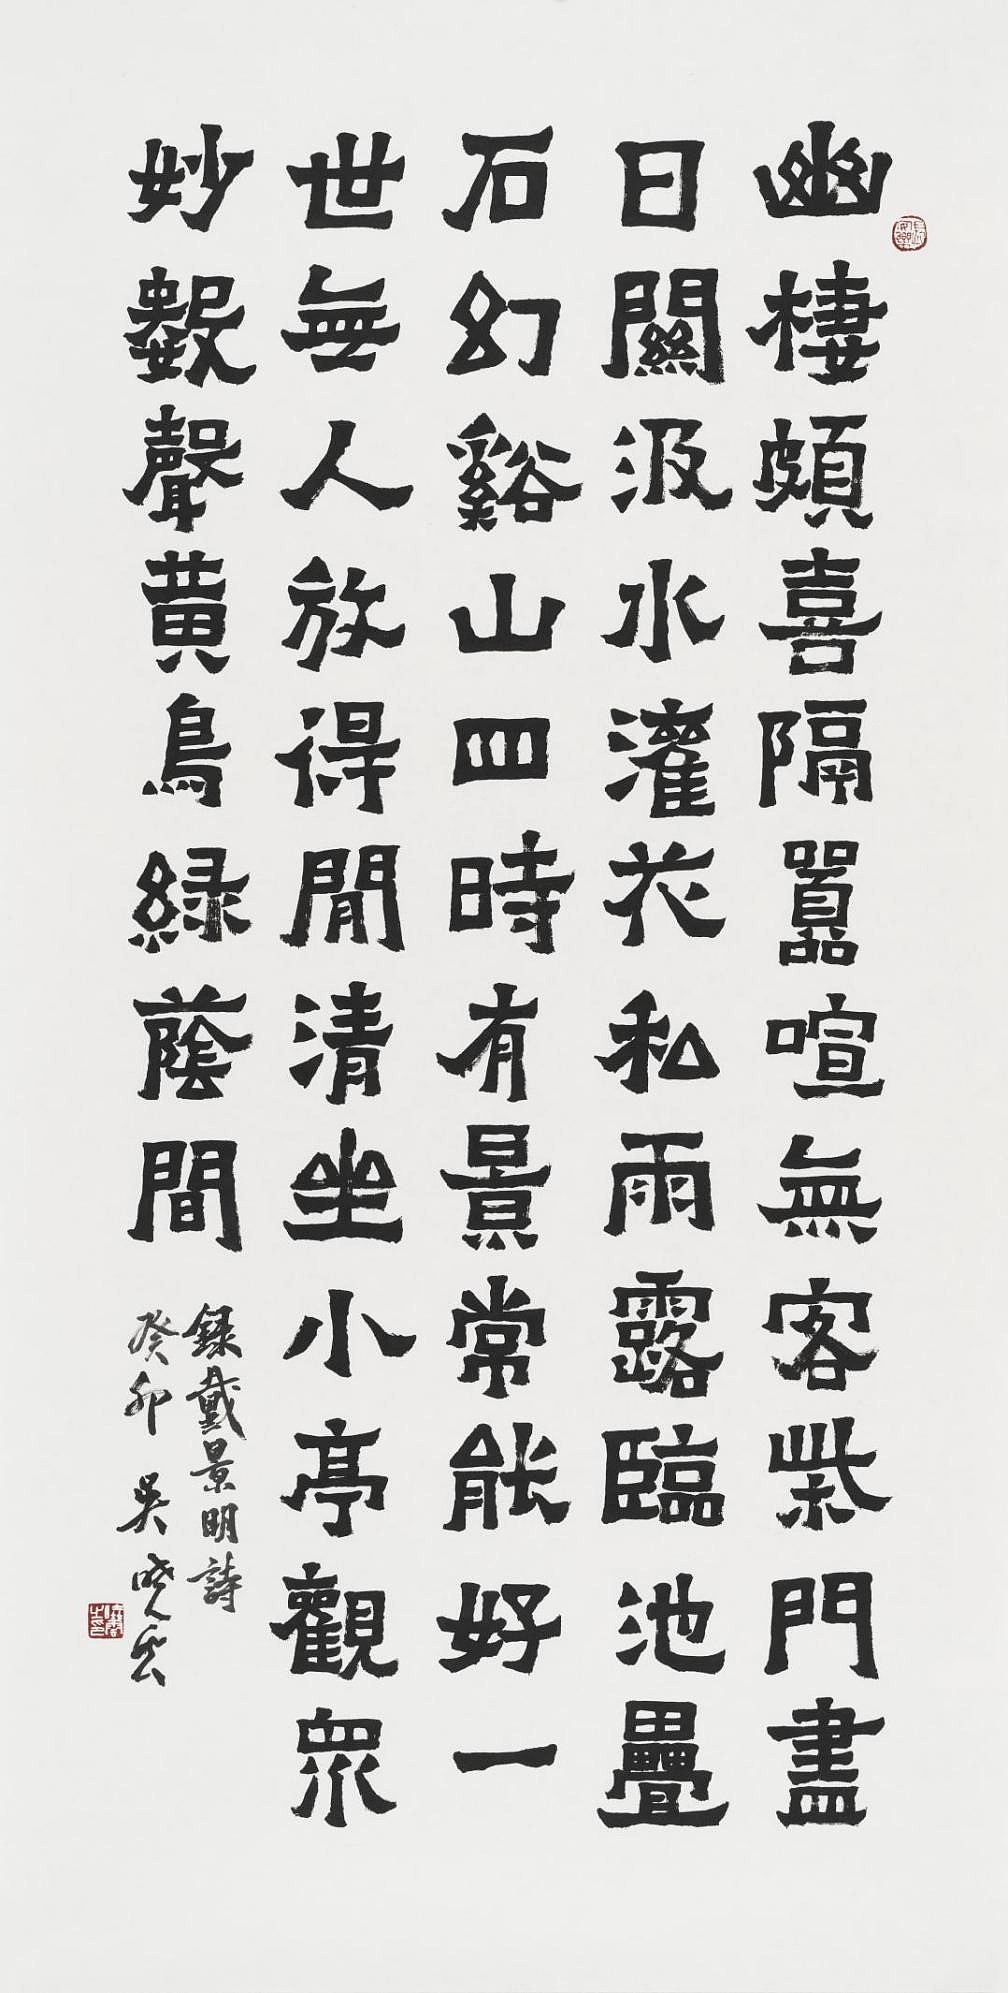 幽棲頗喜隔囂喧無客柴門盡
日關汲水灌花私雨露臨池疊
石幻谿山四時有景常能好一
世無人放得閒清坐小亭觀眾
妙數聲黃鳥綠蔭間
錄戴景明詩
癸卯 吳曉雲